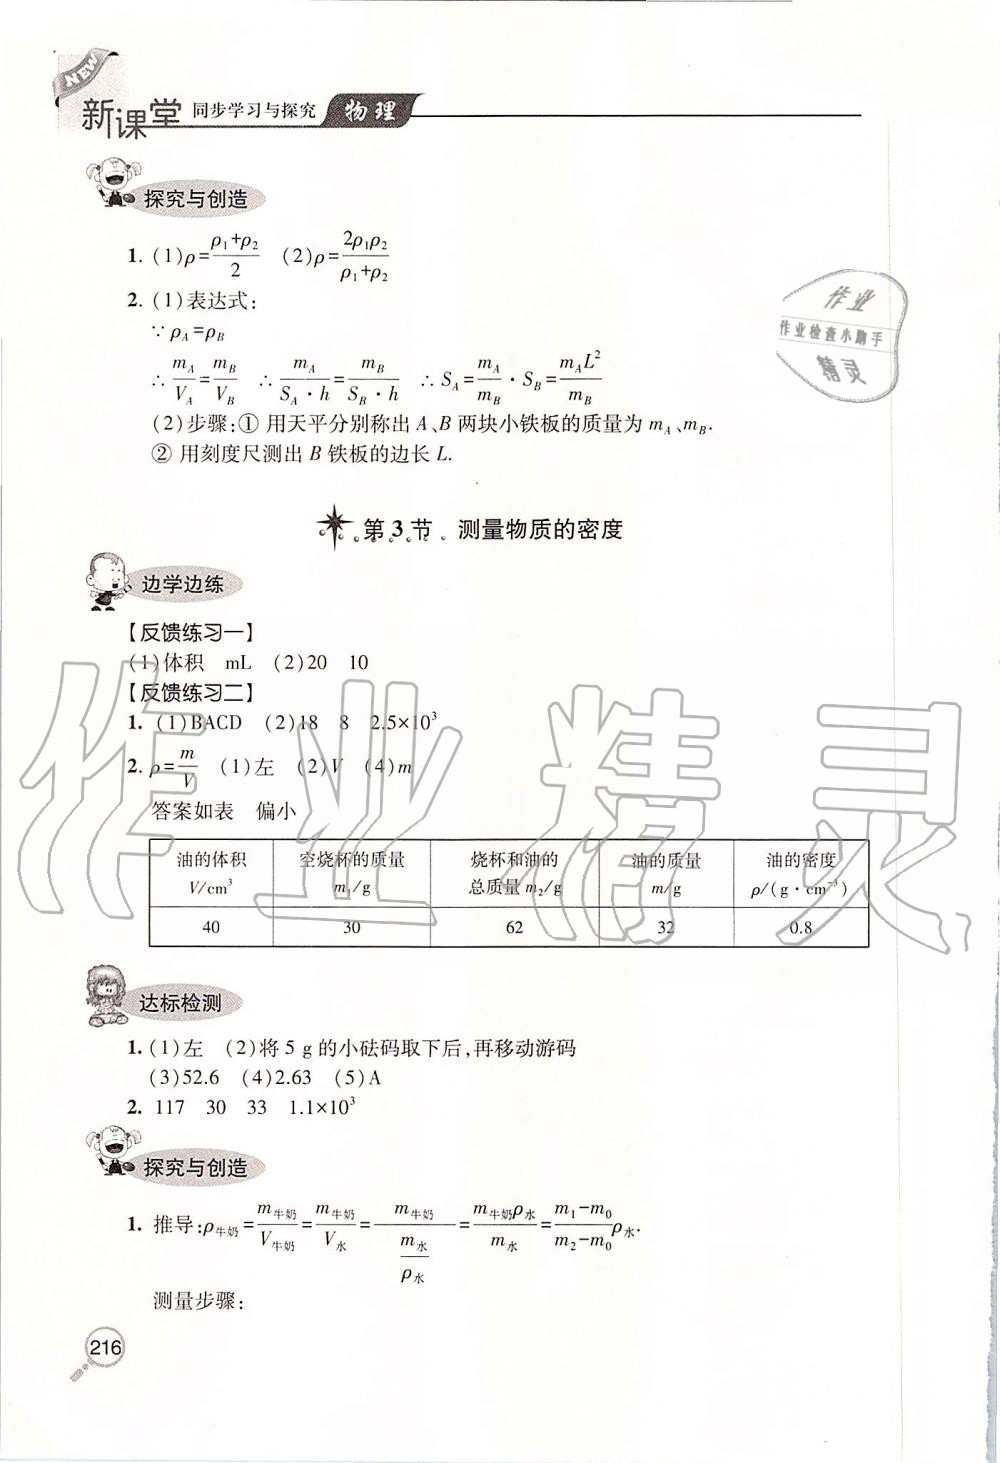 NEW
新课堂 同步学习与探究 物理
探究与创造
1. (1)ρ=(ρ₁+ρ₂)/2 (2)ρ=2ρ₁ρ₂/(ρ₁+ρ₂)
2. (1)表达式:
∵ρ_A=ρ_B
∴m_A/V_A=m_B/V_B ∴m_A/(S_A·h)=m_B/(S_B·h) ∴S_A=m_A/m_B·S_B=m_AL²/m_B
(2)步骤:① 用天平分别称出 A、B 两块小铁板的质量为 m_A、m_B.
② 用刻度尺测出 B 铁板的边长 L.
作业
作业检查小助手
精灵
第3节 测量物质的密度
边学边练
【反馈练习一】
(1)体积 mL (2)20 10
【反馈练习二】
1. (1)BACD (2)18 8 2.5×10³
2. ρ=m/V (1)左 (2)V (4)m
答案如表 偏小
油的体积 V/cm³ 空烧杯的质量 m₁/g 烧杯和油的总质量 m₂/g 油的质量 m/g 油的密度 ρ/(g·cm⁻³)
40 30 62 32 0.8
达标检测
1. (1)左 (2)将 5 g 的小砝码取下后,再移动游码
(3)52.6 (4)2.63 (5)A
2. 117 30 33 1.1×10³
探究与创造
1. 推导:ρ牛奶=m牛奶/V牛奶=m牛奶/V水=m牛奶/(m水/ρ水)=m牛奶ρ水/m水=(m₁-m₀)/(m₂-m₀)ρ水.
测量步骤:
216
作业精灵